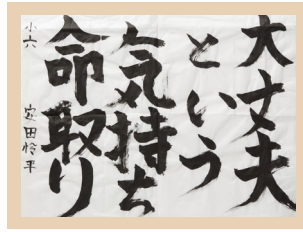 大丈夫
という
気持ち
命取り
小六
安田悠平